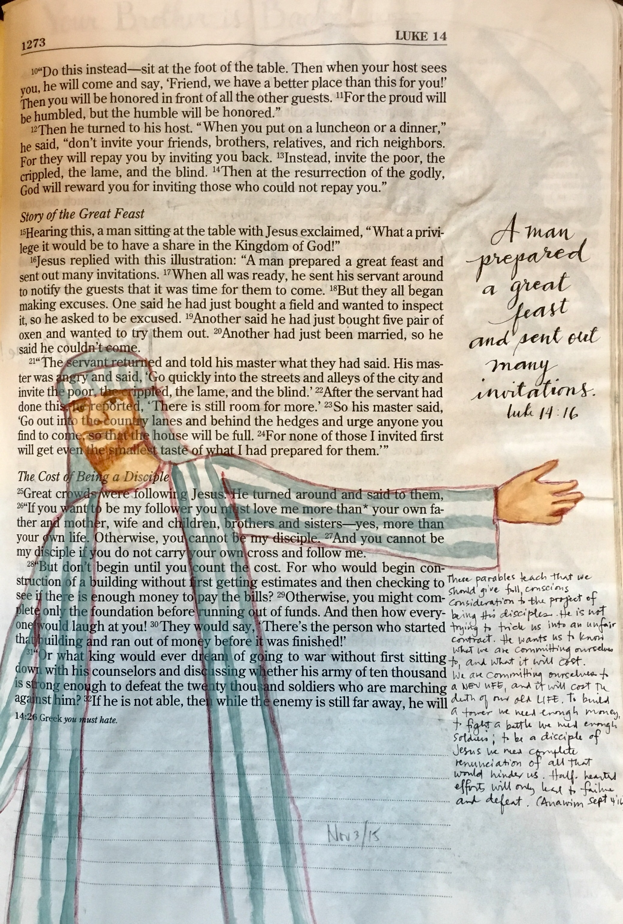 1273
LUKE 14
10“Do this instead—sit at the foot of the table. Then when your host sees
you, he will come and say, ‘Friend, we have a better place than this for you!’
Then you will be honored in front of all the other guests. 11For the proud will
be humbled, but the humble will be honored.”
12Then he turned to his host. “When you put on a luncheon or a dinner,”
he said, “don’t invite your friends, brothers, relatives, and rich neighbors.
For they will repay you by inviting you back. 13Instead, invite the poor, the
crippled, the lame, and the blind. 14Then at the resurrection of the godly,
God will reward you for inviting those who could not repay you.”
Story of the Great Feast
15Hearing this, a man sitting at the table with Jesus exclaimed, “What a privi-
lege it would be to have a share in the Kingdom of God!”
16Jesus replied with this illustration: “A man prepared a great feast and
sent out many invitations. 17When all was ready, he sent his servant around
to notify the guests that it was time for them to come. 18But they all began
making excuses. One said he had just bought a field and wanted to inspect
it, so he asked to be excused. 19Another said he had just bought five pair of
oxen and wanted to try them out. 20Another had just been married, so he
said he couldn’t come.
21“The servant returned and told his master what they had said. His mas-
ter was angry and said, ‘Go quickly into the streets and alleys of the city and
invite the poor, the crippled, the lame, and the blind.’ 22After the servant had
done this, he reported, ‘There is still room for more.’ 23So his master said,
‘Go out into the country lanes and behind the hedges and urge anyone you
find to come, so that the house will be full. 24For none of those I invited first
will get even the smallest taste of what I had prepared for them.’”
The Cost of Being a Disciple
25Great crowds were following Jesus. He turned around and said to them,
26“If you want to be my follower you must love me more than* your own fa-
ther and mother, wife and children, brothers and sisters—yes, more than
your own life. Otherwise, you cannot be my disciple. 27And you cannot be
my disciple if you do not carry your own cross and follow me.
28“But don’t begin until you count the cost. For who would begin con-
struction of a building without first getting estimates and then checking to
see if there is enough money to pay the bills? 29Otherwise, you might com-
plete only the foundation before running out of funds. And then how every-
one would laugh at you! 30They would say, ‘There’s the person who started
that building and ran out of money before it was finished!’
31“Or what king would ever dream of going to war without first sitting
down with his counselors and discussing whether his army of ten thousand
is strong enough to defeat the twenty thousand soldiers who are marching
against him? 32If he is not able, then while the enemy is still far away, he will
14:26 Greek you must hate.
A man
prepared
a great
feast
and sent out
many
invitations.
luke 14:16
These parables teach that we
should give full, conscious
consideration to the project of
being His disciples. He is not
trying to trick us into an unfair
contract. He wants us to know
what we are committing ourselves
to, and what it will cost.
We are committing ourselves to
a NEW LIFE, and it will cost the
death of our old LIFE. To build
a tower we need enough money,
to fight a battle we need enough
soldiers; to be a disciple of
Jesus we need complete
renunciation of all that
would hinder us. Half-hearted
efforts will only lead to failure
and defeat. (Anawim Sept 4
Nov 3/15